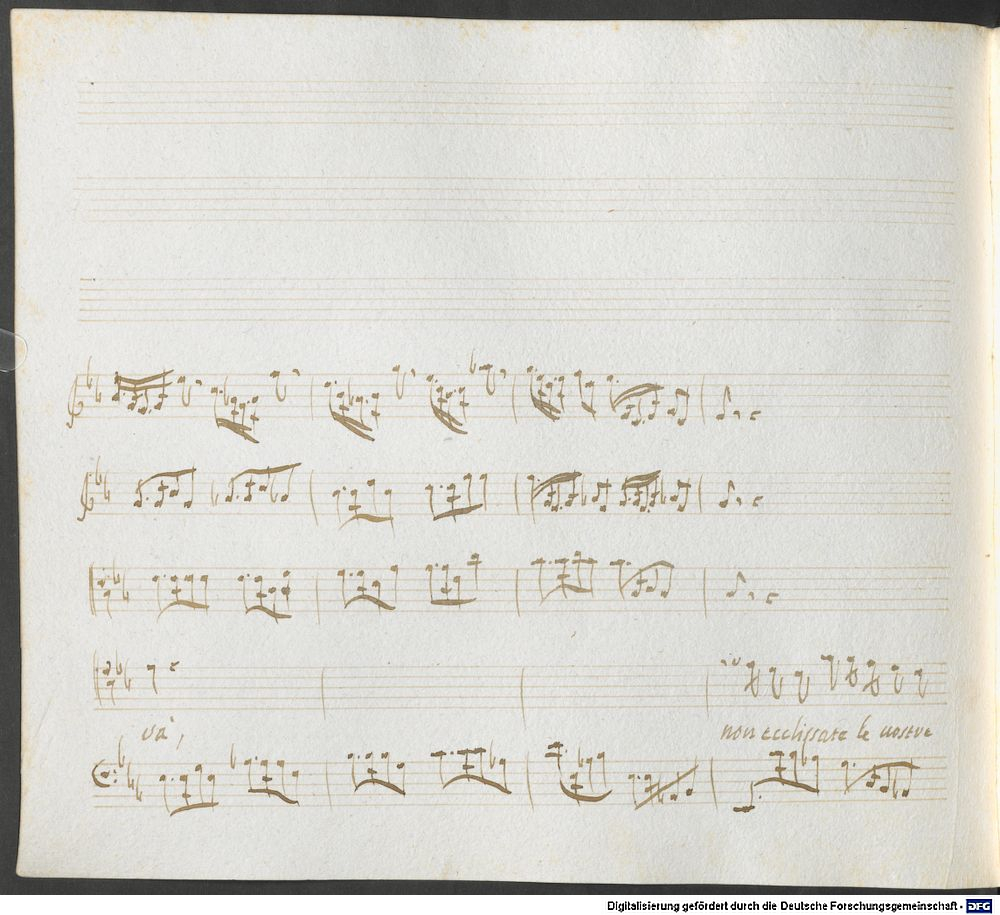 va,
non ecclissate le nostre
Digitalisierung gefördert durch die Deutsche Forschungsgemeinschaft - DFG